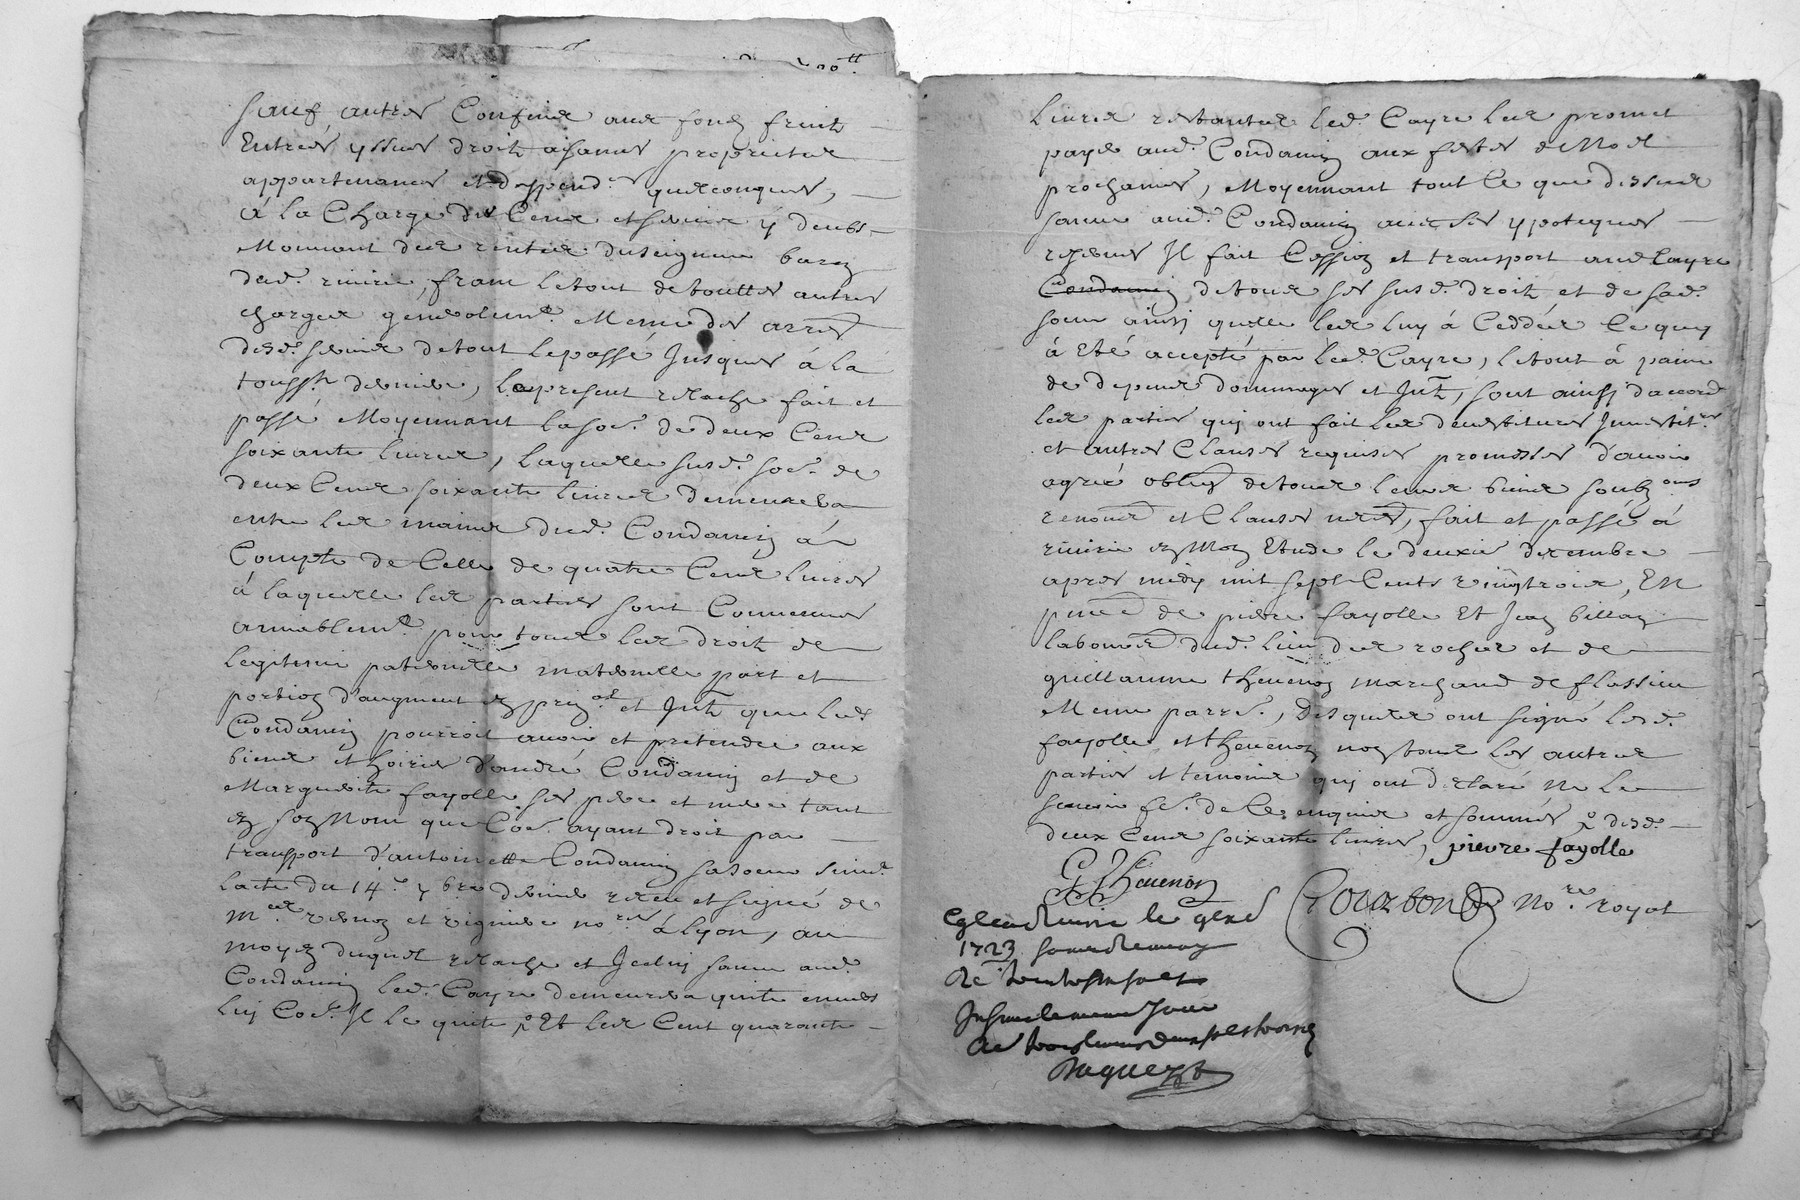 sauf autres Confins avec fonds fruits
Entrées yssues droits aisances proprietes
appartenances et deppend.es quelconques,
a la Charge des Cens et servis y deubs
Mouvant des rentes du seigneur baron
dud. riviere, franc le tout de touttes autres
charges generalem.t Meme des arrér.
desd. servis de tout le passé Jusques à la
touss.ts derniere, le present relache fait et
passé Moyennant la so.e de deux Cens
soixante livres, laquelle susd. so.e de
deux Cens soixante livres demeurera
entre les mains dud. Condamin à
Compte de Celle de quatre Cens livres
à laquelle les parties sont Convenues
amiablem.t pour tous les droits de
legitime paternelle maternelle part et
portion d'augment en prin.al et Jnts que led.
Condamin pourroit avoir et pretendre aux
biens et hoiries d'andré Condamin et de
Marguerite fayolle ses pere et mere tant
en son Nom que Co.e ayant droit par
transport d'antoinette Condamin sa soeur suiv.
lacte du 14.e 7bre dernier receu et signé de
M.es et vignier no.res à Lyon, au
moyen duquel relache et Jceluy sauve aud.
Condamin led. Cayre demeurera quitte envers
luy Co.e Jl le quitte et les Cent quarante
livres restantes led. Cayre les promet
payer aud. Condamin aux festes de Noel
prochaines, Moyennant tout Ce que dessus
sauve aud. Condamin avec ses ypoteques
reserves Jl fait Cession et transport aud Cayre
Condamin de tous ses susd. droits et de sad.
soeur ainsi qu'elle les luy à Ceddés Ce qui
à Eté accepté par led. Cayre, le tout à peine
de depens dommages et Jnts, sont ainsi d'accord
les parties qui ont fait les devestitures Jnvestit.res
et autres Clauses requises promesses d'avoir
agréé oblig.on de tous leurs biens soub.ons
renonc.ons et Clauses necess.res, fait et passé à
riviere en Mon Etude le deuxie decembre
apres midy mil sept Cents vingtrois, EN
pnce de pierre fayolle Et Jean billon
laboureurs dud. lieu des roches et de
guillaume thevenon marchand de flassieu
Meme parr.e, Desquels ont signé lesd.
fayolle et thevenon non tous les autres
parties et temoins qui ont declaré ne le
scavoir fe. de Ce enquis et sommés p. desd.
deux Cens soixante livres, pierre fayolle
G Thevenon
Courbon No.re royal
1723
Jnsinué le meme Jour